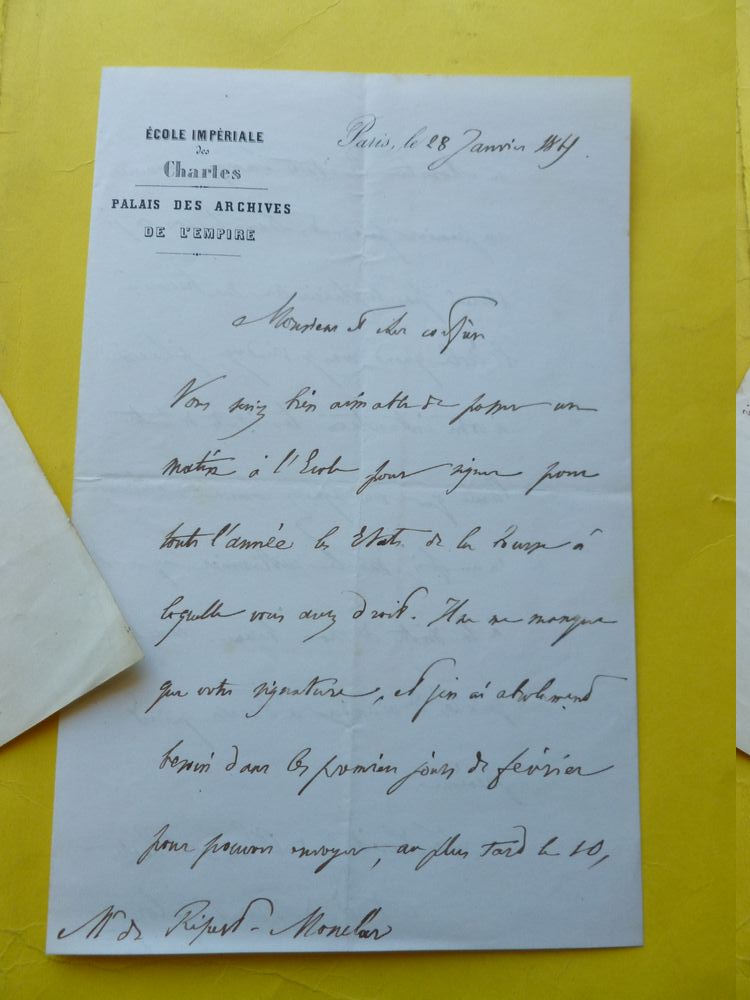 ÉCOLE IMPÉRIALE
des
Chartes
PALAIS DES ARCHIVES
DE L'EMPIRE
Paris, le 28 Janvier
Monsieur et cher confrère
Vous seriez bien aimable de passer un
matin à l'Ecole pour signer pour
toute l'année les Etats de la bourse à
laquelle vous avez droit. Il ne me manque
que votre signature, et j'en ai absolument
besoin dans les premiers jours de février
pour pouvoir envoyer, au plus tard le 10,
Mr de Ripert-Monclar